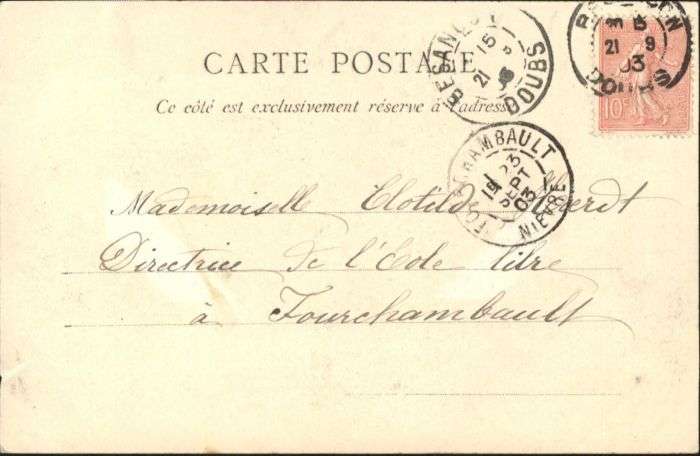 CARTE POSTALE
Ce côté est exclusivement réservé à l'adresse
BESANÇON
15
21 9
DOUBS
BESANÇON
21 9
03
DOUBS
10c
FOURCHAMBAULT
23
SEPT
03
NIEVRE
Mademoiselle Clotilde
Directrice de l'Ecole libre
à Fourchambault